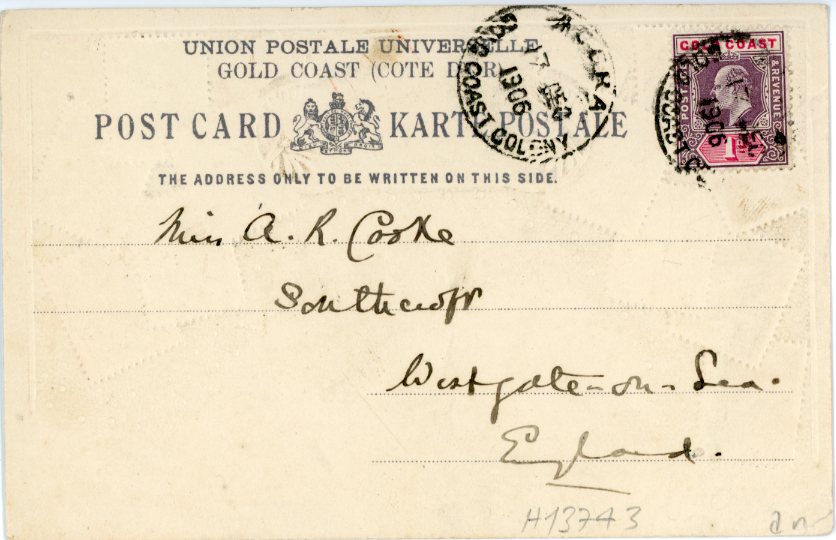 UNION POSTALE UNIVERSELLE
GOLD COAST (COTE D'OR)
POST CARD KARTE POSTALE
THE ADDRESS ONLY TO BE WRITTEN ON THIS SIDE.
ACCRA
17 DEC
1906
GOLD COAST COLONY
GOLD COAST
POSTAGE & REVENUE
1d
1906
Miss A. R. Cooke
Southcroft
Westgate-on-Sea.
England.
H13743